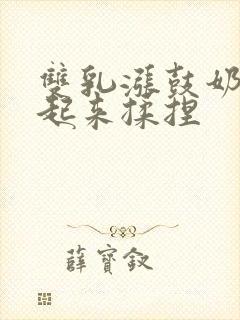 雙乳漲鼓奶
起来揉捏
薛寶釵